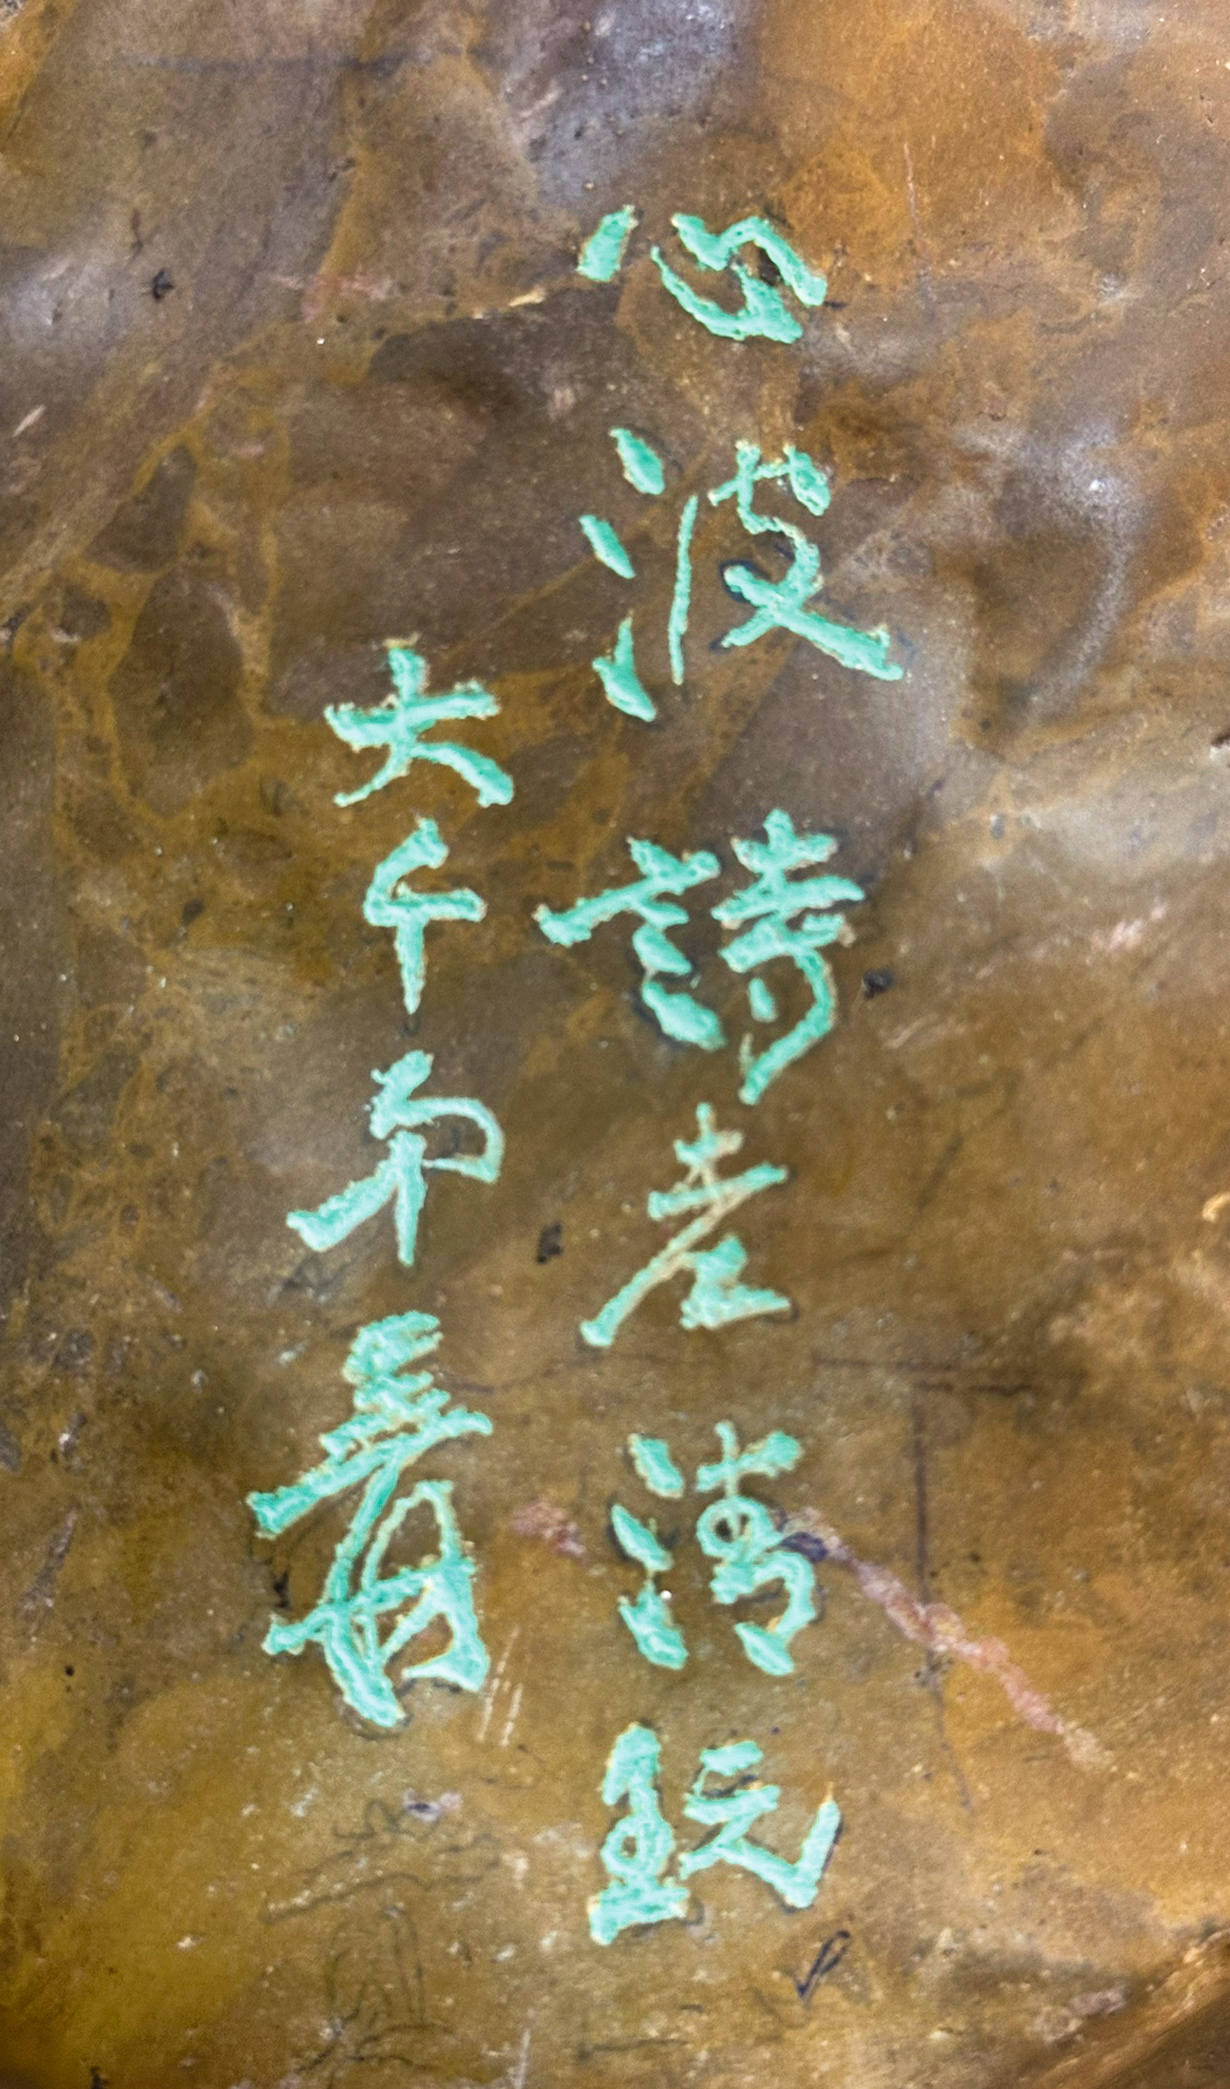 心波詩老清玩
大千弟爰